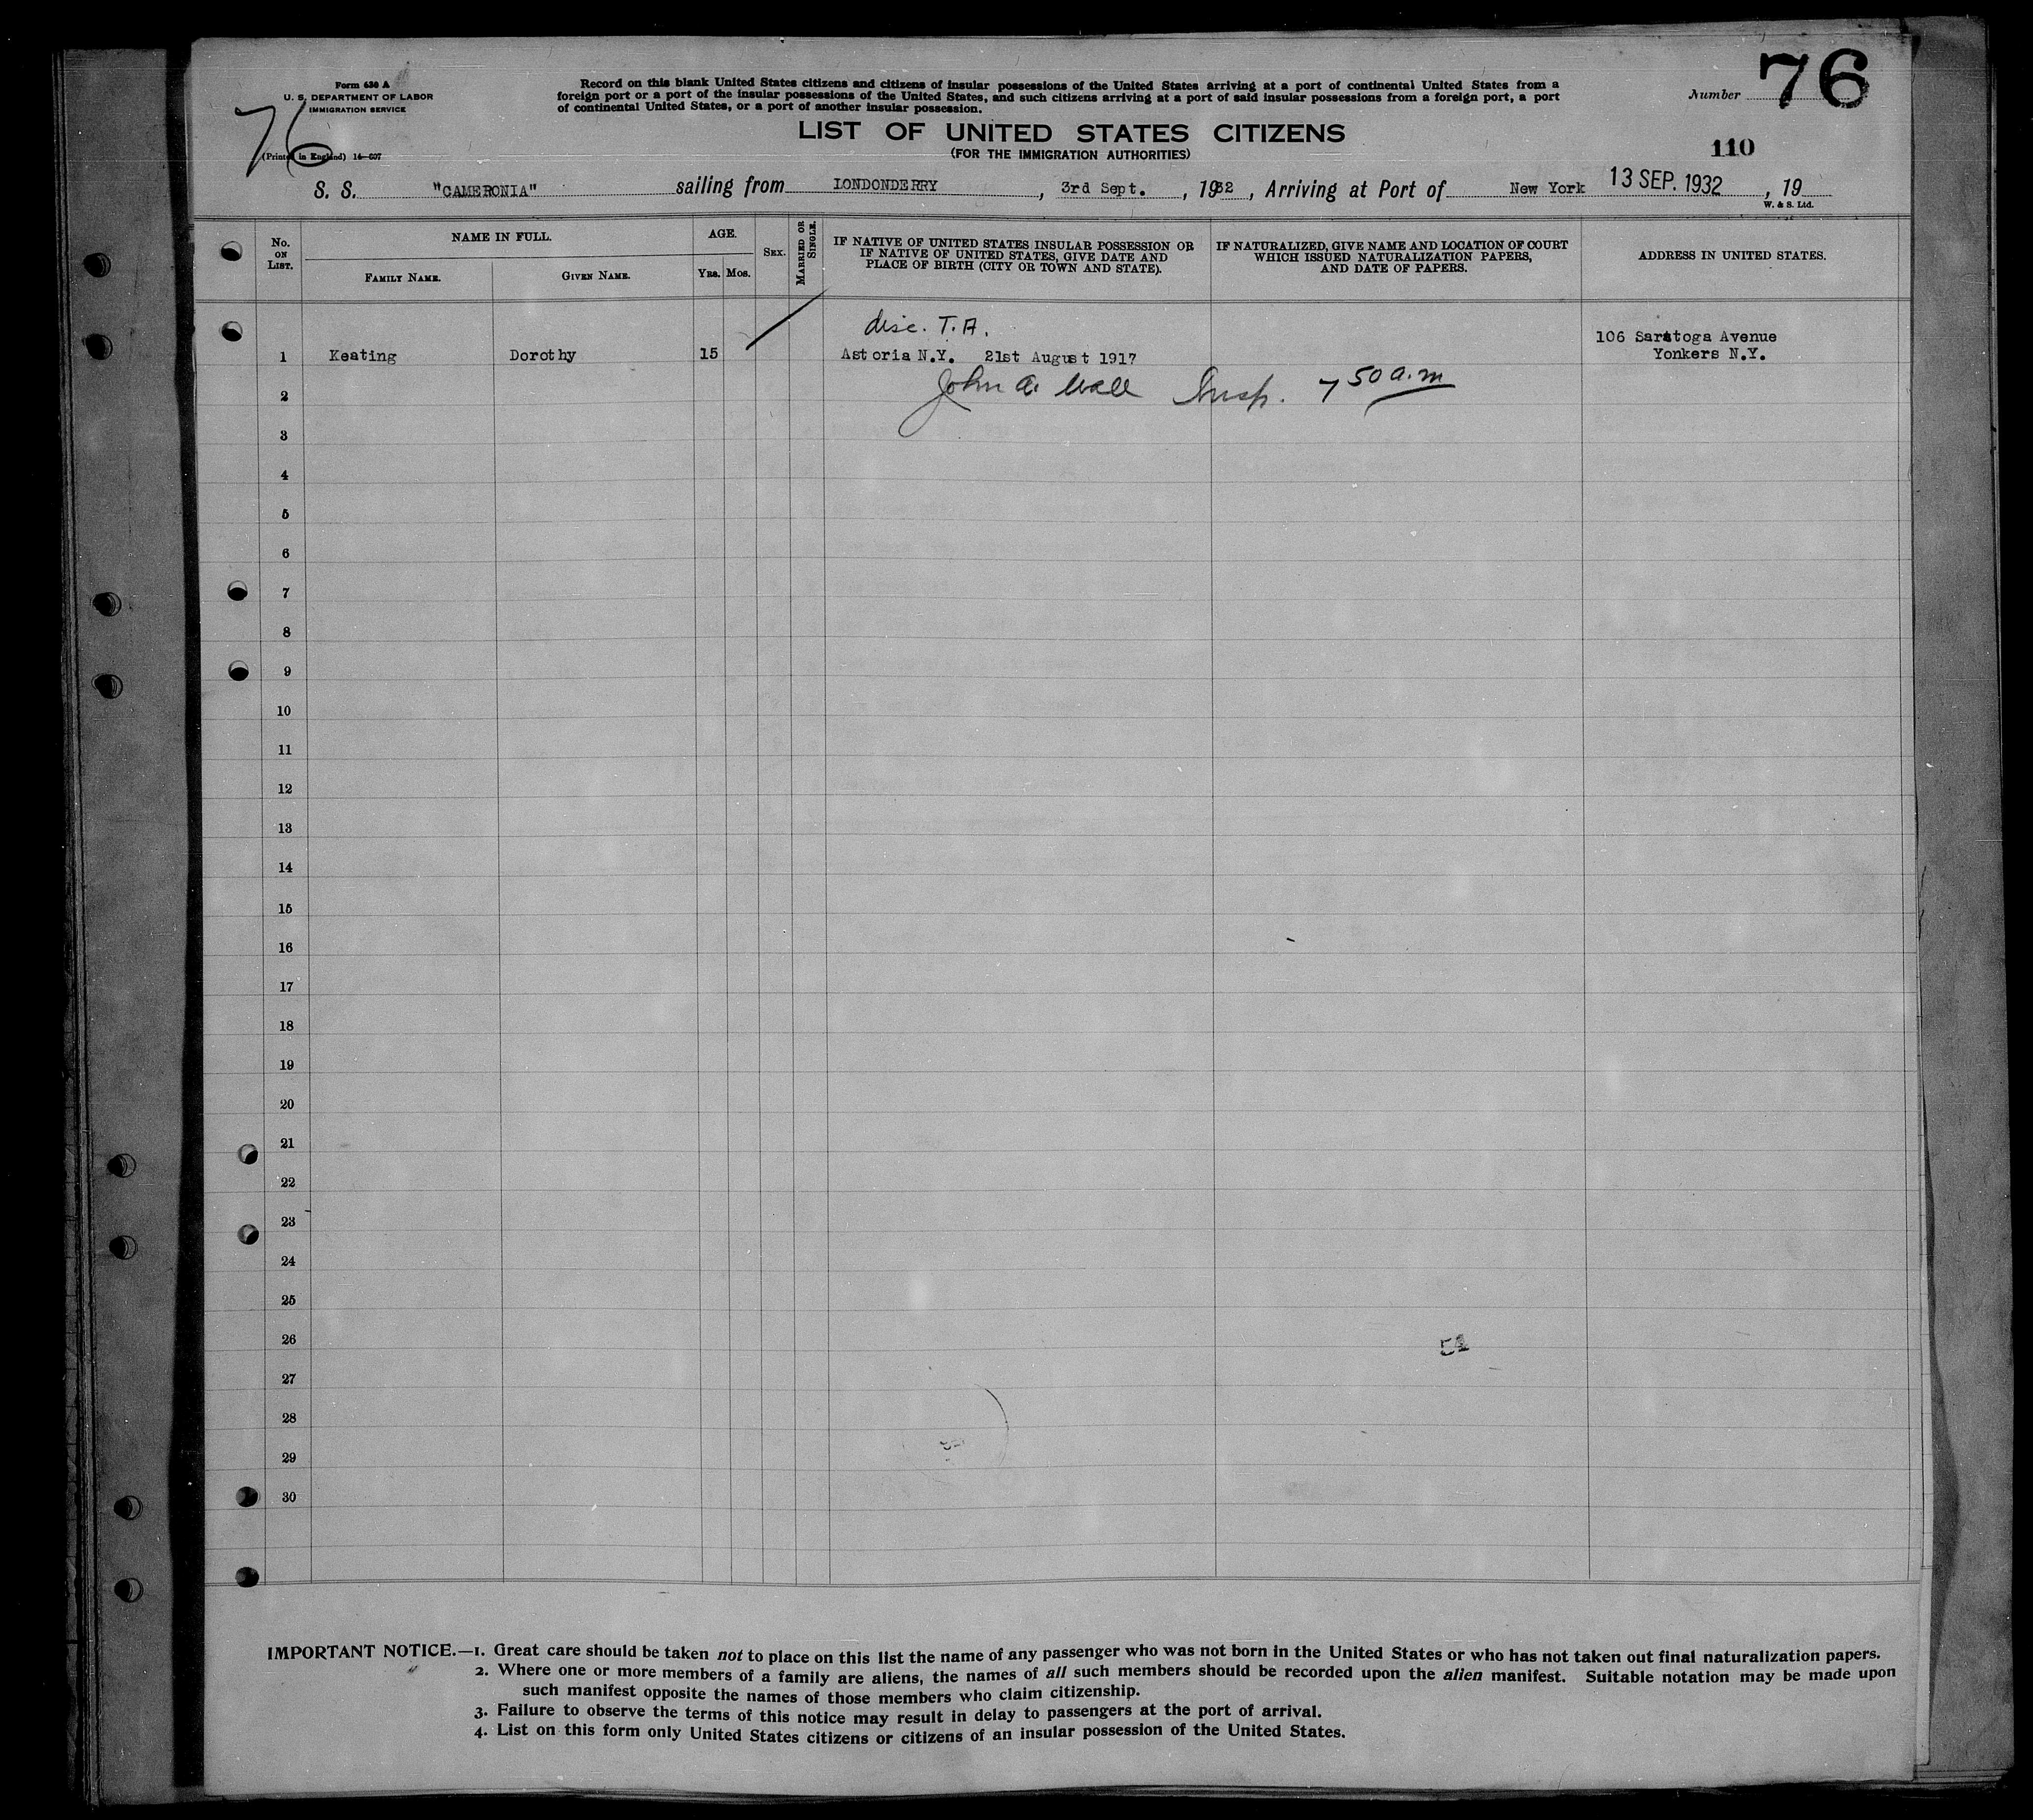 76
Form 630 A
U. S. DEPARTMENT OF LABOR
IMMIGRATION SERVICE
76
(Printed in England) 14—607
Record on this blank United States citizens and citizens of insular possessions of the United States arriving at a port of continental United States from a
foreign port or a port of the insular possessions of the United States, and such citizens arriving at a port of said insular possessions from a foreign port, a port
of continental United States, or a port of another insular possession.
Number
LIST OF UNITED STATES CITIZENS
(FOR THE IMMIGRATION AUTHORITIES)
110
S. S. "CAMERONIA" sailing from LONDONDERRY, 3rd Sept., 1932, Arriving at Port of New York 13 SEP. 1932, 19
W. & S. Ltd.
No. ON LIST.
NAME IN FULL.
FAMILY NAME.
GIVEN NAME.
AGE.
YRS.
MOS.
SEX.
MARRIED OR SINGLE.
IF NATIVE OF UNITED STATES INSULAR POSSESSION OR
IF NATIVE OF UNITED STATES, GIVE DATE AND
PLACE OF BIRTH (CITY OR TOWN AND STATE).
IF NATURALIZED, GIVE NAME AND LOCATION OF COURT
WHICH ISSUED NATURALIZATION PAPERS,
AND DATE OF PAPERS.
ADDRESS IN UNITED STATES.
disc. T.A.
106 Saratoga Avenue
1 Keating Dorothy 15 Astoria N.Y. 21st August 1917 Yonkers N.Y.
2 John A. Wall Insp. 7 50 a.m
3
4
5
6
7
8
9
10
11
12
13
14
15
16
17
18
19
20
21
22
23
24
25
26
27
28
29
30
IMPORTANT NOTICE.—1. Great care should be taken not to place on this list the name of any passenger who was not born in the United States or who has not taken out final naturalization papers.
2. Where one or more members of a family are aliens, the names of all such members should be recorded upon the alien manifest. Suitable notation may be made upon
such manifest opposite the names of those members who claim citizenship.
3. Failure to observe the terms of this notice may result in delay to passengers at the port of arrival.
4. List on this form only United States citizens or citizens of an insular possession of the United States.